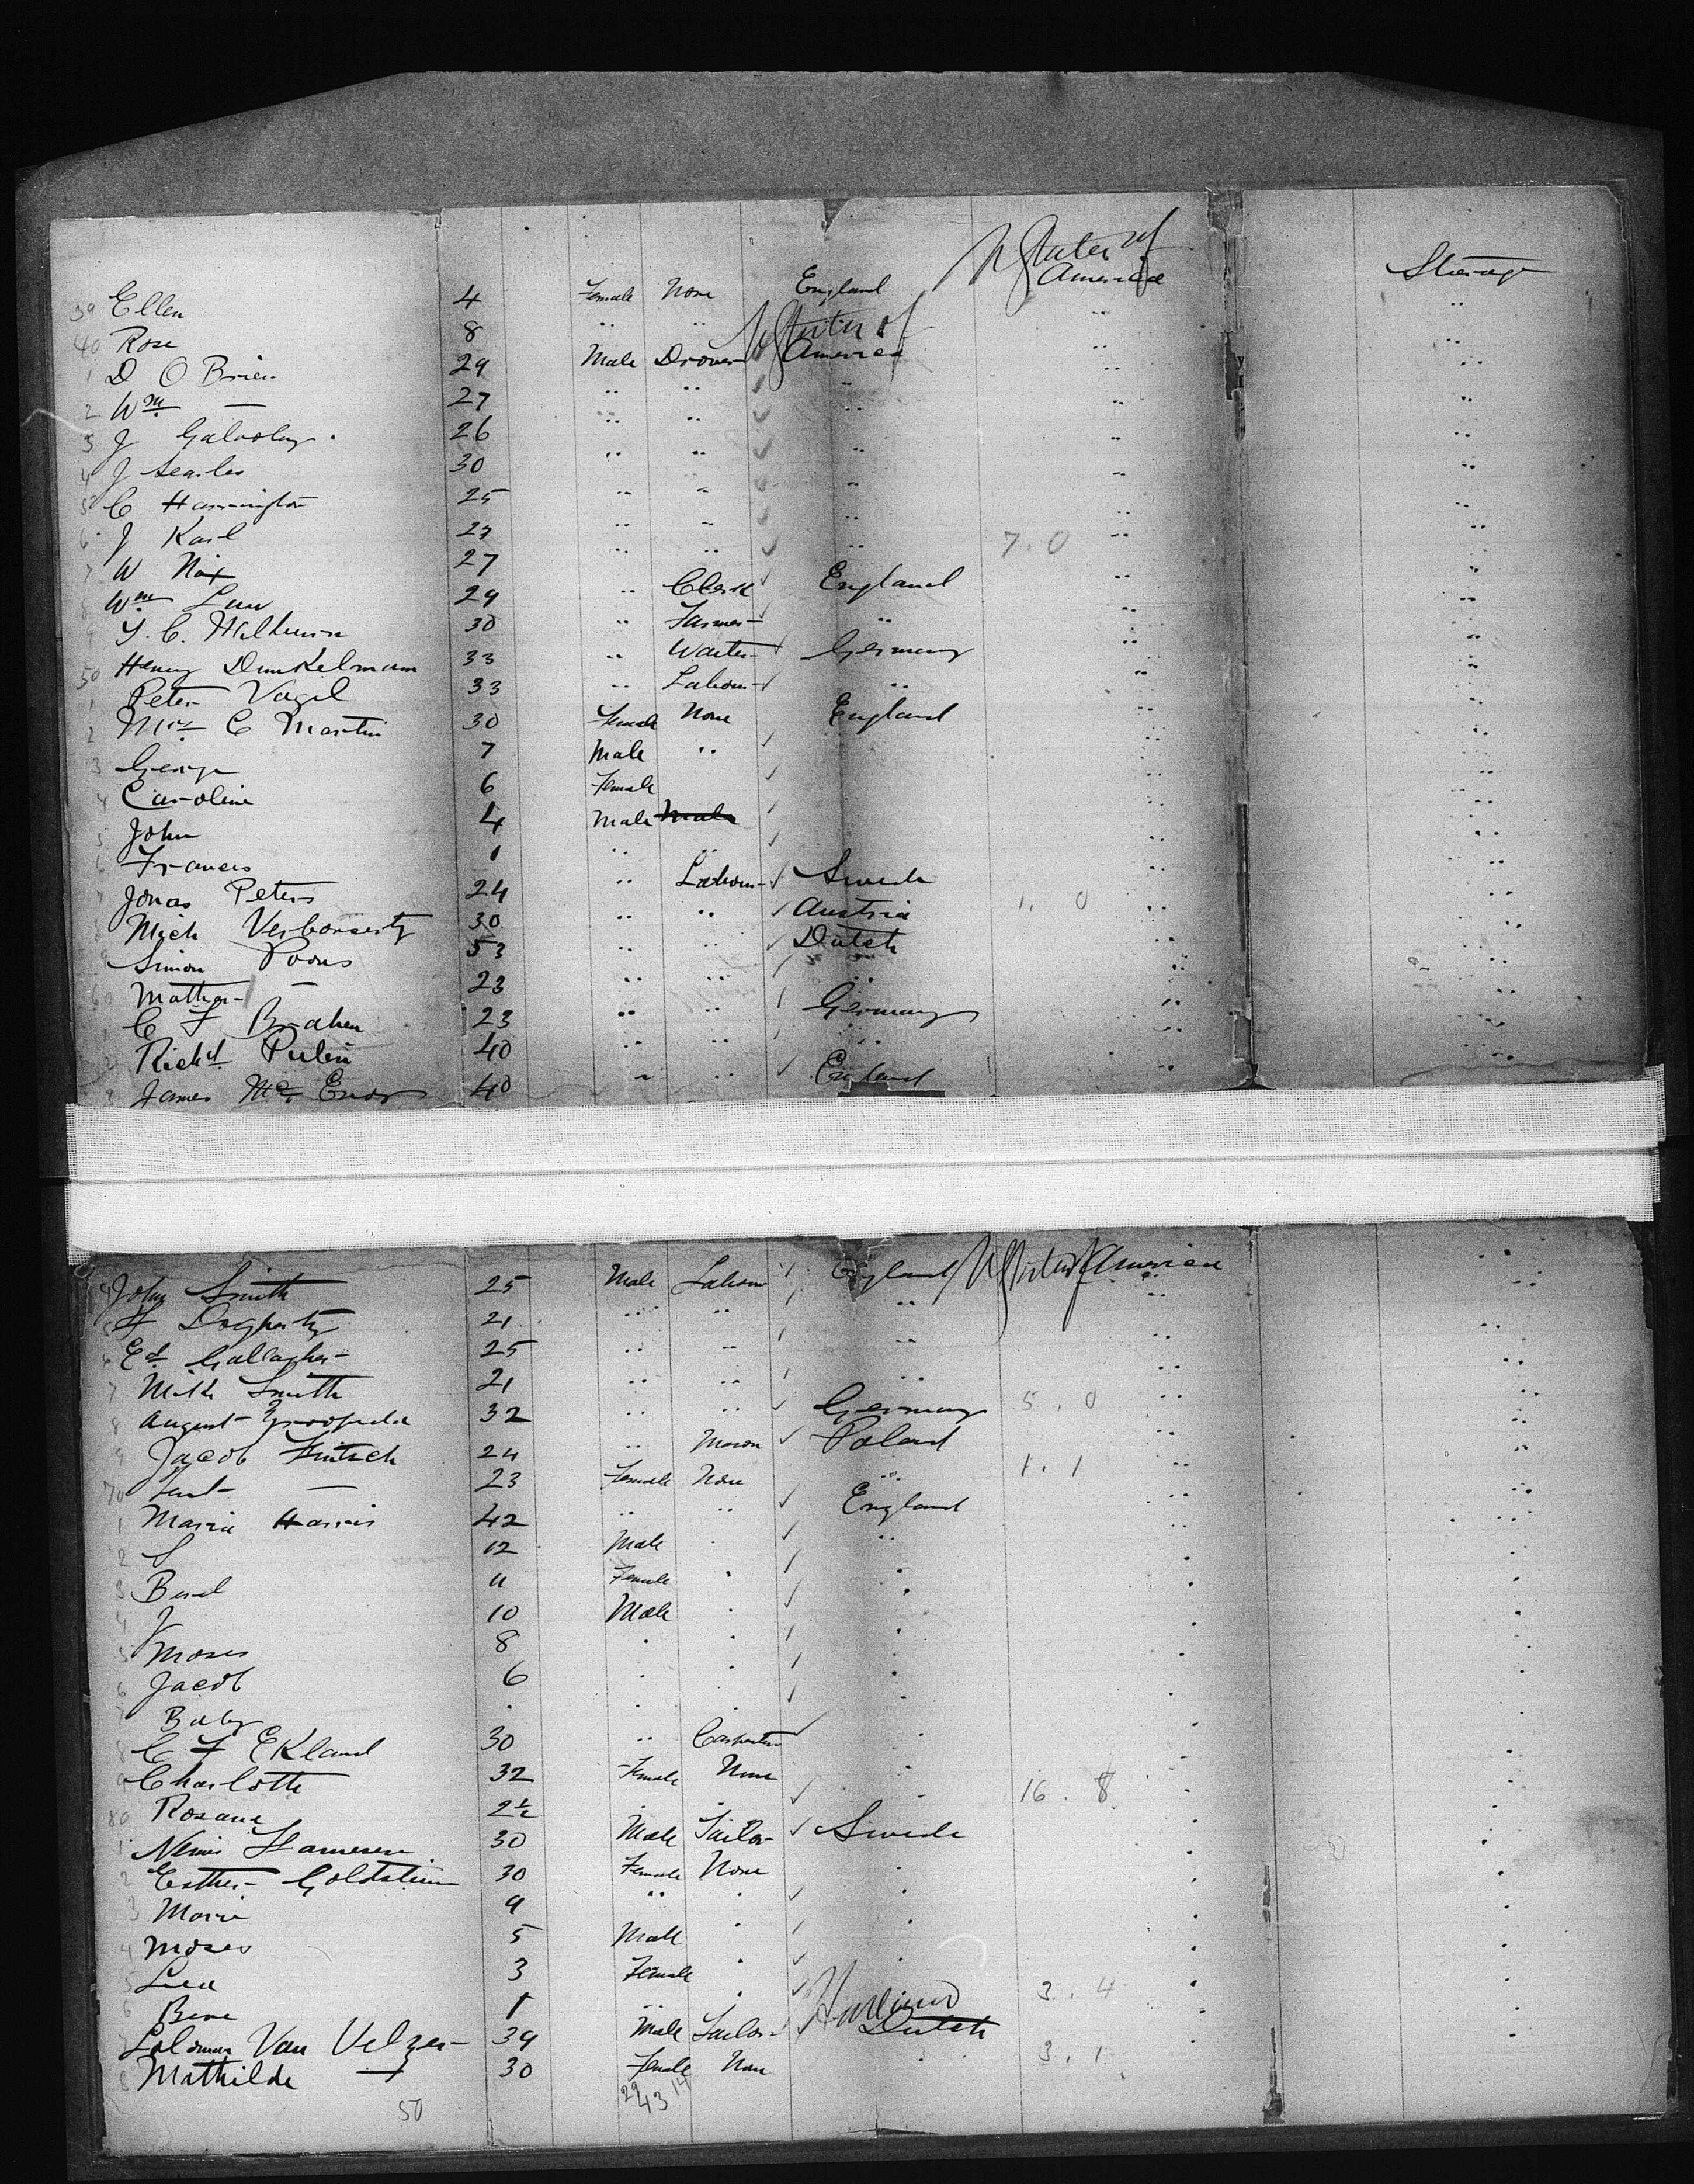 39 Ellen 4 Female None England U States of America Steerage
40 Rose 8 " " " "
1 D O Brien 29 Male Drover U States of America " "
2 Wm — 27 " " " " "
3 J 26 " " " " "
4 J Searles 30 " " " " "
5 C Harrington 25 " " " " "
6 J Karl 27 " " " " "
7 W Nix 27 " " " 7.0 " "
8 Wm Law 29 " Clerk England " "
9 30 " Farmer " " "
50 Henry Dunkelmann 33 " Waiter Germany " "
1 Peter Vogel 33 " Labour " " "
2 Mrs C Martin 30 Female None England " "
3 George 7 Male " " "
4 Caroline 6 Female " "
5 John 4 Male Male " "
6 Frances 1 " " " "
7 Jonas Peters 24 " Labour Swede " "
8 Mich 30 " " Austria 1. 0 " "
9 Simon Poons 53 " " Dutch " "
60 — 23 " " " " "
1 C F Brahen 23 " " Germany " "
2 Richd 40 " " " " "
3 James Mc 40 " " England " "
4 John Smith 25 Male Labour England U States of America "
5 Dogherty 21 " " " " "
6 Ed Gallagher 25 " " " " "
7 Mick Smith 21 " " " " "
8 August 32 " " Germany 5.0 " "
9 Jacob 24 " Mason Poland " "
70 — 23 Female None " 1.1 " "
1 Maria Harris 42 " " England " "
2 S 12 Male " " " "
3 11 Female " " " "
4 J 10 Male " " " "
5 Moses 8 " " " " "
6 Jacob 6 " " " " "
7 Baby " " " " " "
8 C F Ekland 30 " Carpenter " " "
9 Charlotte 32 Female None " " "
80 Rosana 2½ " " " 16.8 " "
1 30 Male Tailor Swede " "
2 Esther Goldstein 30 Female None " " "
3 Marie 9 " " " " "
4 Moses 5 Male " " " "
5 Lea 3 Female " " " "
6 Bene 1 " " " 3.4 " "
7 Van Velzer 39 Male Tailor Holland Dutch " "
8 Mathilde — 30 Female None " 3.1 " "
50 29 14
43